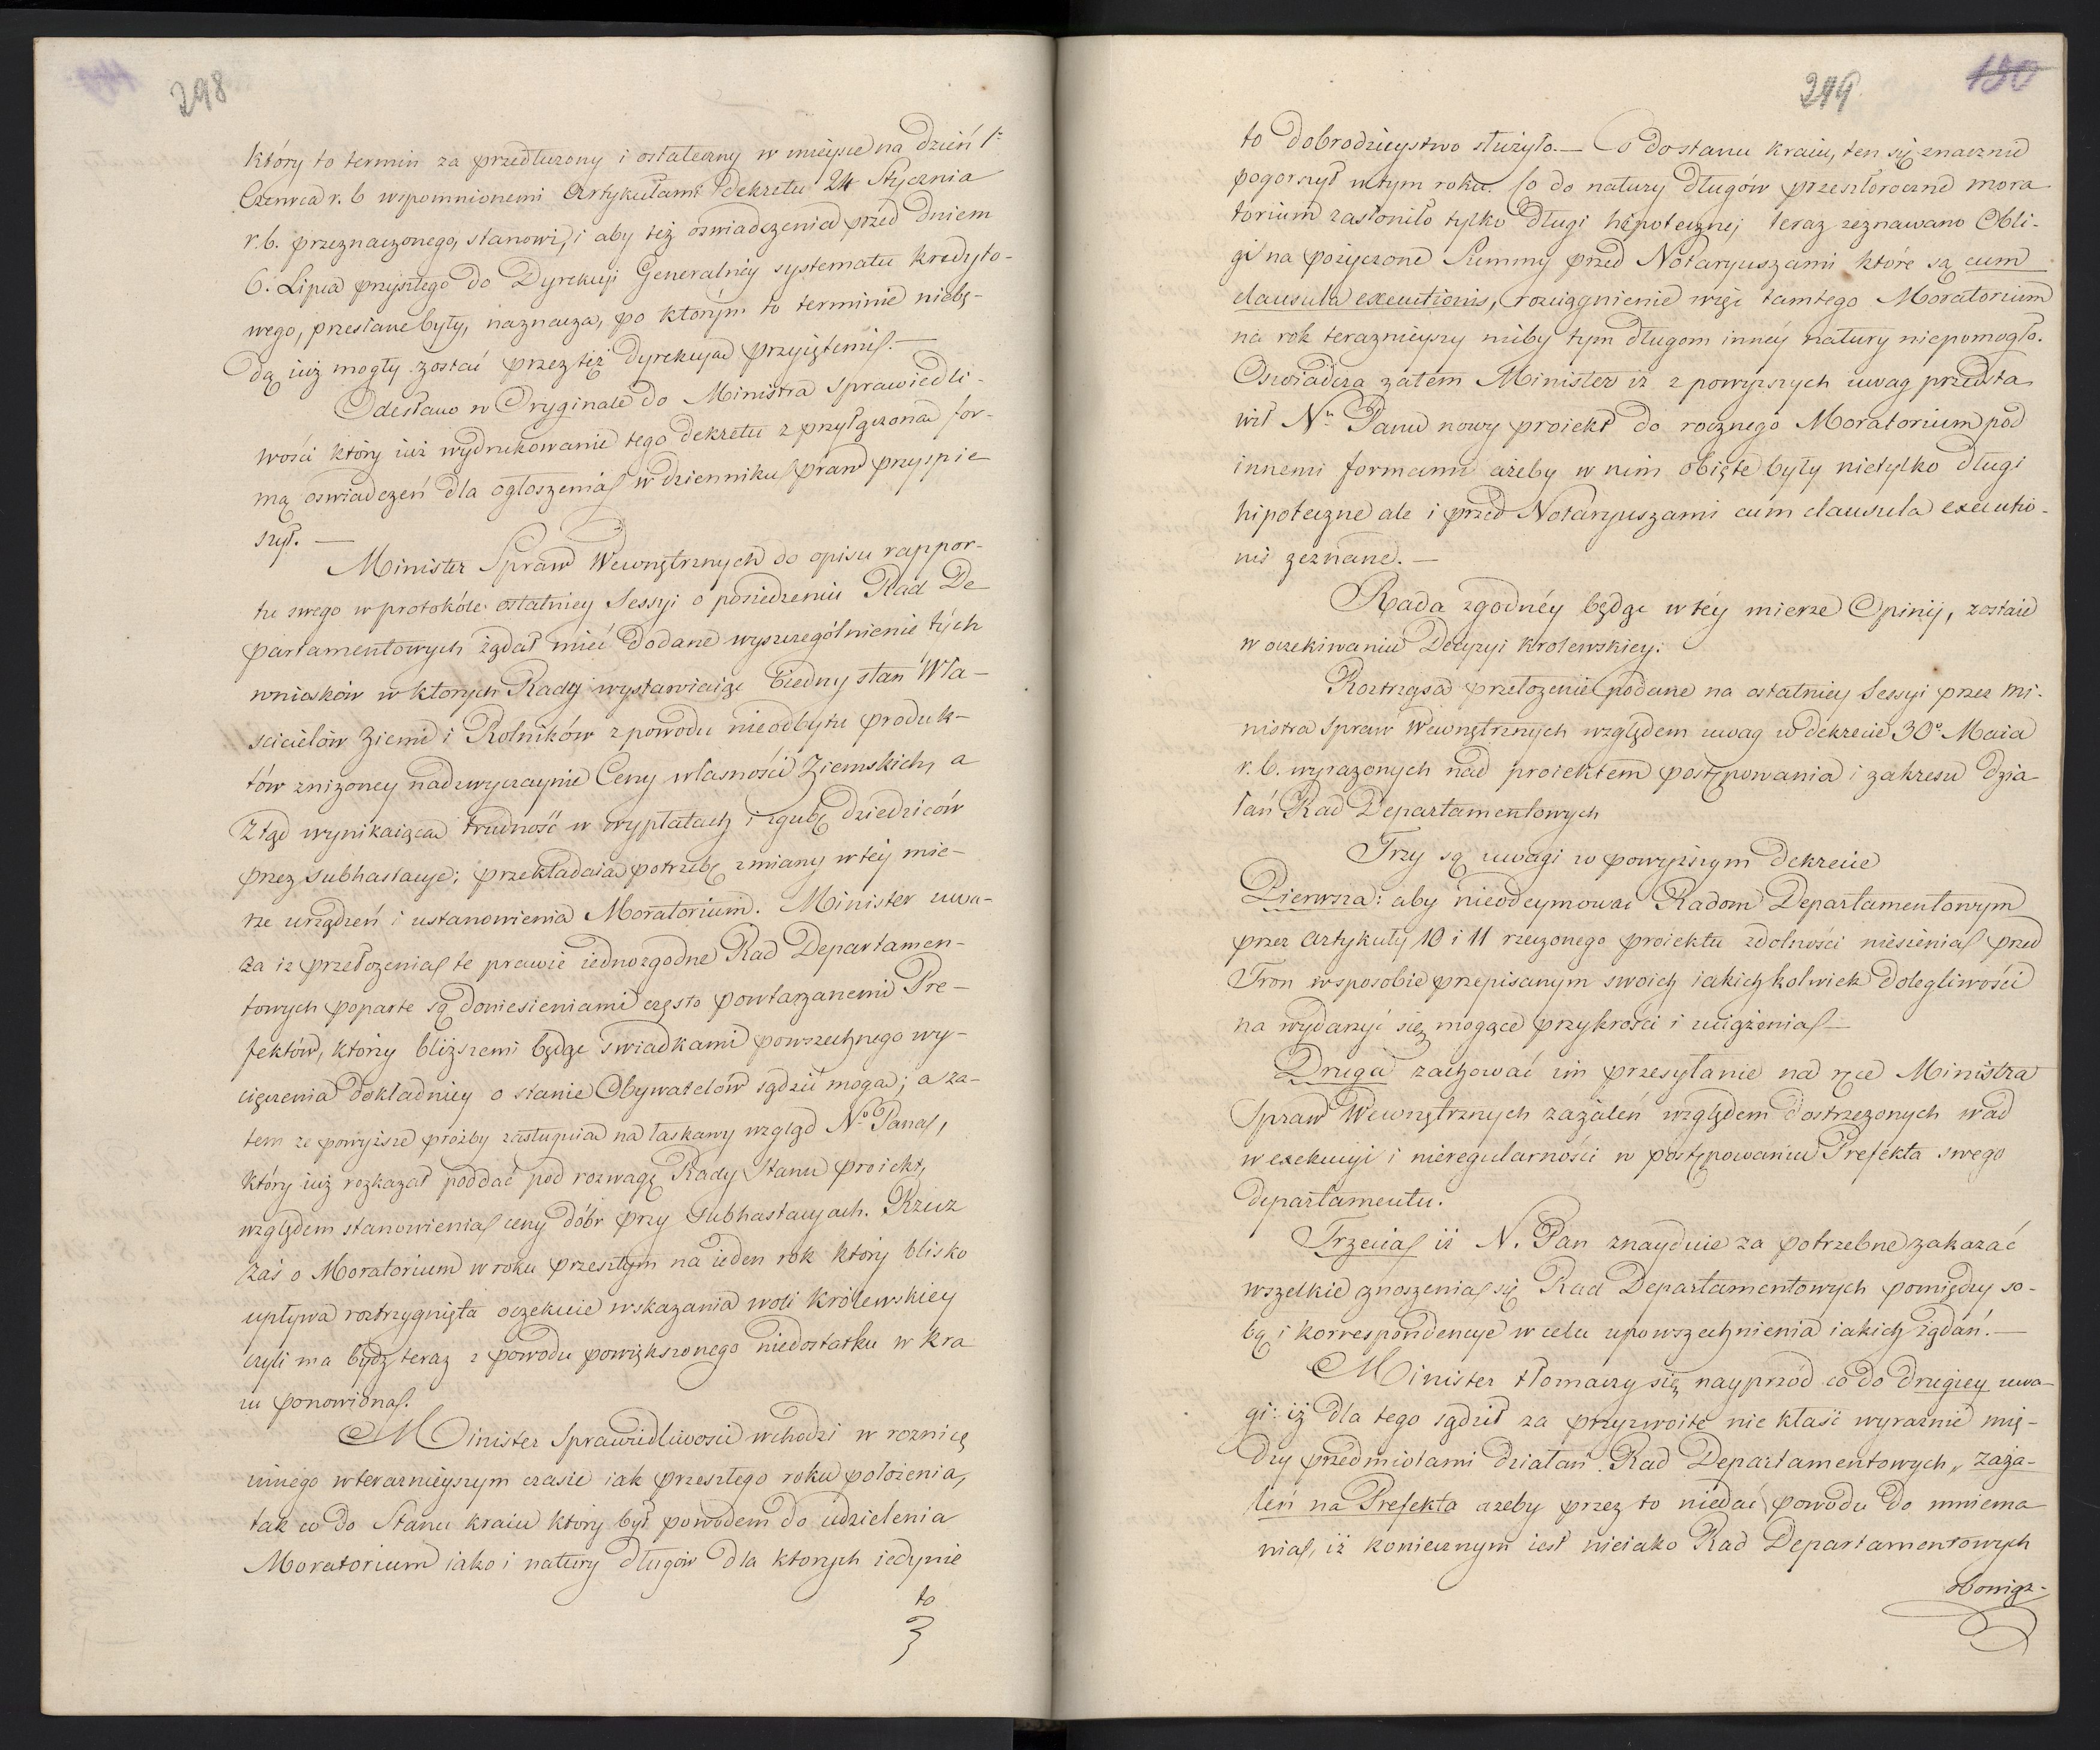 298
który to termin za przedłużony i ostateczny w mieysce na dzień 1º
Czerwca r. b wspomnionemi Artykułami Dekretu 24 Stycznia
r. b. przeznaczonego, stanowi, i aby też oświadczenia przed dniem
6. Lipca przyszłego do Dyrekcyi Generalnéy systematu kredyto-
wego, przesłane były, naznacza, po którym to terminie niebę-
dą iuż mogły zostać przez też Dyrekcyą przyiętemi. —
Odesłano w Oryginale do Ministra Sprawiedli-
wości który iuż wydrukowanie tego dekretu z przyłączoną for-
mą oświadczeń dla ogłoszenia w dzienniku praw przyspie
szył. —
Minister Spraw Wewnętrznych do opisu rappor-
tu swego w protokóle ostatniey Sessyi o posiedzeniu Rad De
partamentowych żądał mieć dodane wyszczególnienie tych
wniosków w których Rady wystawiaiąc biedny stan Wła-
ścicielów Ziemi i Rolników z powodu nieodbytu produk-
tów zniżoney nadzwyczaynie Ceny własności Ziemskich, a
Ztąd wynikaiąca trudność w wypłatach i zgubę dziedziców
przez subhastacye; przekładaią potrzebę zmiany w téy mie-
rze urządzeń i ustanowienia Moratorium. Minister uwa-
ża iż przełożenia te prawie iednozgodne Rad Departamen-
towych poparte są doniesieniami często powtarzanemi Pre-
fektów, którzy bliższemi będąc świadkami powszechnego wy-
cięczenia dokładniey o stanie Obywatelów sądzić mogą; a za-
tem że powyższe prośby zasługuią na łaskawy wzgląd No Pana,
który iuż rozkazał poddać pod rozwagę Rady Stanu proiekt,
względem stanowienia ceny dóbr przy subhastacyach. Rzecz
zaś o Moratorium w roku przeszłym na ieden rok który blisko
upływa roztrzygnięta oczekuie wskazania woli Królewskiey
czyli ma bydź teraz z powodu powiększonego niedostatku w Kra
iu ponowioną.
Minister Sprawiedliwości wchodzi w roznicę
innego w teraznieyszym czasie iak przeszłego roku położenia,
tak co do Stanu kraiu który był powodem do udzielenia
Moratorium iako i natury długów dla ktorych iedynie
to
299
150
to dobrodzieystwo służyło. — Co do stanu kraiu, ten się znacznie
pogorszył w tym roku. Co do natury długów przeszłoroczne mora
torium zasłoniło tylko długi hipoteczne; teraz zeznawano Obli-
gi na pożyczone Summy przed Notaryuszami które są cum
clausula executionis, rozciągnienie więc tamtego Moratorium
na rok teraznieyszy niby tym długom innéy natury niepomogło.
Oswiadcza zatem Minister iż z powyższych uwag przedsta
wił Nu Panu nowy proiekt do rocznego Moratorium pod
innemi formami ażeby w nim obięte były nietylko długi
hipoteczne ale i przed Notaryuszami cum clausula executio-
nis zeznane. —
Rada zgodnéy będąc w téy mierze Opinij, zostaie
w oczekiwaniu Decyzyi krolewskiey.
Roztrząsa przełozenie podane na ostatniey Sessyi przez Mi-
nistra Spraw Wewnętrznych względem uwag w dekrecie 30º Maia
r. b. wyrazonych nad proiektem postępowania i zakresu dzia
łań Rad Departamentowych
Trzy są uwagi w powyższym dekrecie
Pierwsza: aby nieodeymować Radom Departamentowym
przez Artykuły 10 i 11 rzeczonego proiektu zdolności niesienia przed
Tron w sposobie przepisanym swoich iakichkolwiek dolegliwości
na wydarzyć się mogące przykrości i uciążenia —
Druga zachować im przesyłanie na ręce Ministra
Spraw Wewnętrznych zażaleń względem dostrzeżonych wad
w exekucyi i nieregularności w postępowaniu Prefekta swego
departamentu.
Trzecia iż N. Pan znayduie za potrzebne zakazać
wszelkie znoszenia się Rad Departamentowych pomiędzy so-
bą i korrespondencye w celu upowszechnienia iakich żądań. —
Minister tłomaczy się nayprzód co do drugiey uwa-
gi: iż dla tego sądził za przyzwoite nie kłaść wyraznie mię-
dzy przedmiotami działań Rad Departamentowych „ zaża-
leń na Prefekta ażeby przez to niedać powodu do mniema
nia, iż koniecznym iest nieiako Rad Departamentowych
obowiąz-